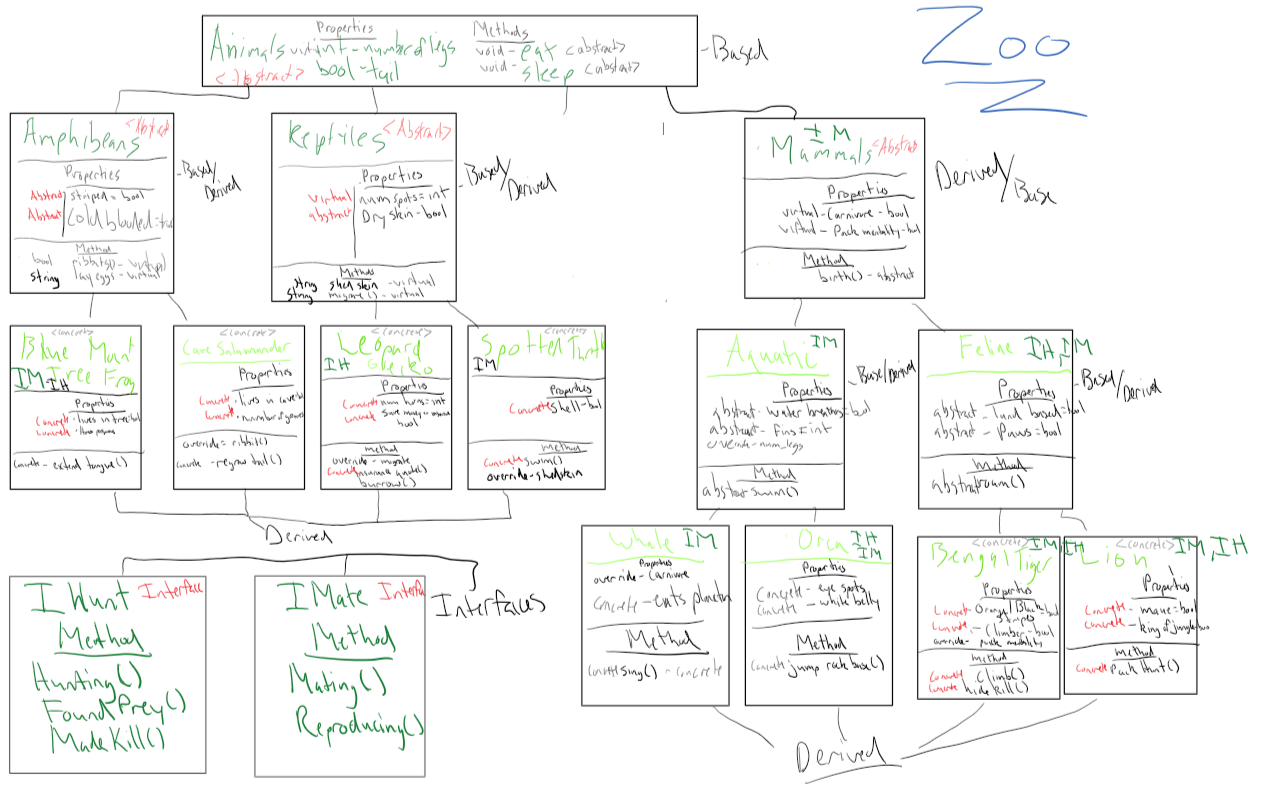 Zoo
Properties
Methods
Animals virtual int - number of legs
void - eat <abstract>
bool - tail
void - sleep <abstract>
- Based
Amphibeans
Properties
Abstract striped = bool
Abstract Cold blooded = true
Method
bool ribbit() - virtual
string lay eggs - virtual
- Based/
Derived
Reptiles <Abstract>
Properties
virtual num spots = int
abstract Dry skin - bool
Method
string shedskin - virtual
string migrate() - virtual
- Based/
Derived
I M
Mammals <Abstract
Properties
virtual - Carnivore - bool
virtual - Pack mentality - bool
Method
birth() - abstract
Derived/
Base
<concrete>
Blue Mount
Tree Frog
IM IH
Properties
Concrete - lives in tree = bool
Concrete -
Concrete - extend tongue()
<concrete>
Cave Salamander
Properties
Concrete - lives in cave = bool
Concrete - number of
override = ribbit()
Concrete - regrow tail()
<concrete>
Leopard
IH Ghecko
Properties
Concrete num = int
Concrete
bool
method
override - migrate
Concrete
burrow()
<concrete>
Spotted Turtle
IM
Properties
Concrete shell = bool
method
Concrete swim()
override - shedskin
Derived
IM
Aquatic
Properties
abstract - water breathing = bool
abstract - Fins = int
override - num_legs
Method
abstract swim()
- Base/Derived
Feline IH, IM
Properties
abstract - land based = bool
abstract - Paws = bool
Method
abstract roam()
- Based/
Derived
Whale IM
Properties
override - Carnivore
concrete - eats plancton
Method
concrete sing() - concrete
Orca IH
IM
Properties
Concrete - eye spots
Concrete - white belly
Method
Concrete jump rock base()
<concrete> IM, IH
Bengal Tiger
Properties
Concrete Orange/Black = bool
stripes
Concrete - Climber - bool
override - pack mentality
method
Concrete Climb()
Concrete hide kill()
<concrete> IM, IH
Lion
Properties
Concrete - mane = bool
Concrete - king of jungle = bool
method
Concrete Pack Hunt()
Derived
I Hunt Interface
Method
Hunting()
Found Prey()
Made Kill()
I Mate
Method
Mating()
Reproducing()
Interfaces